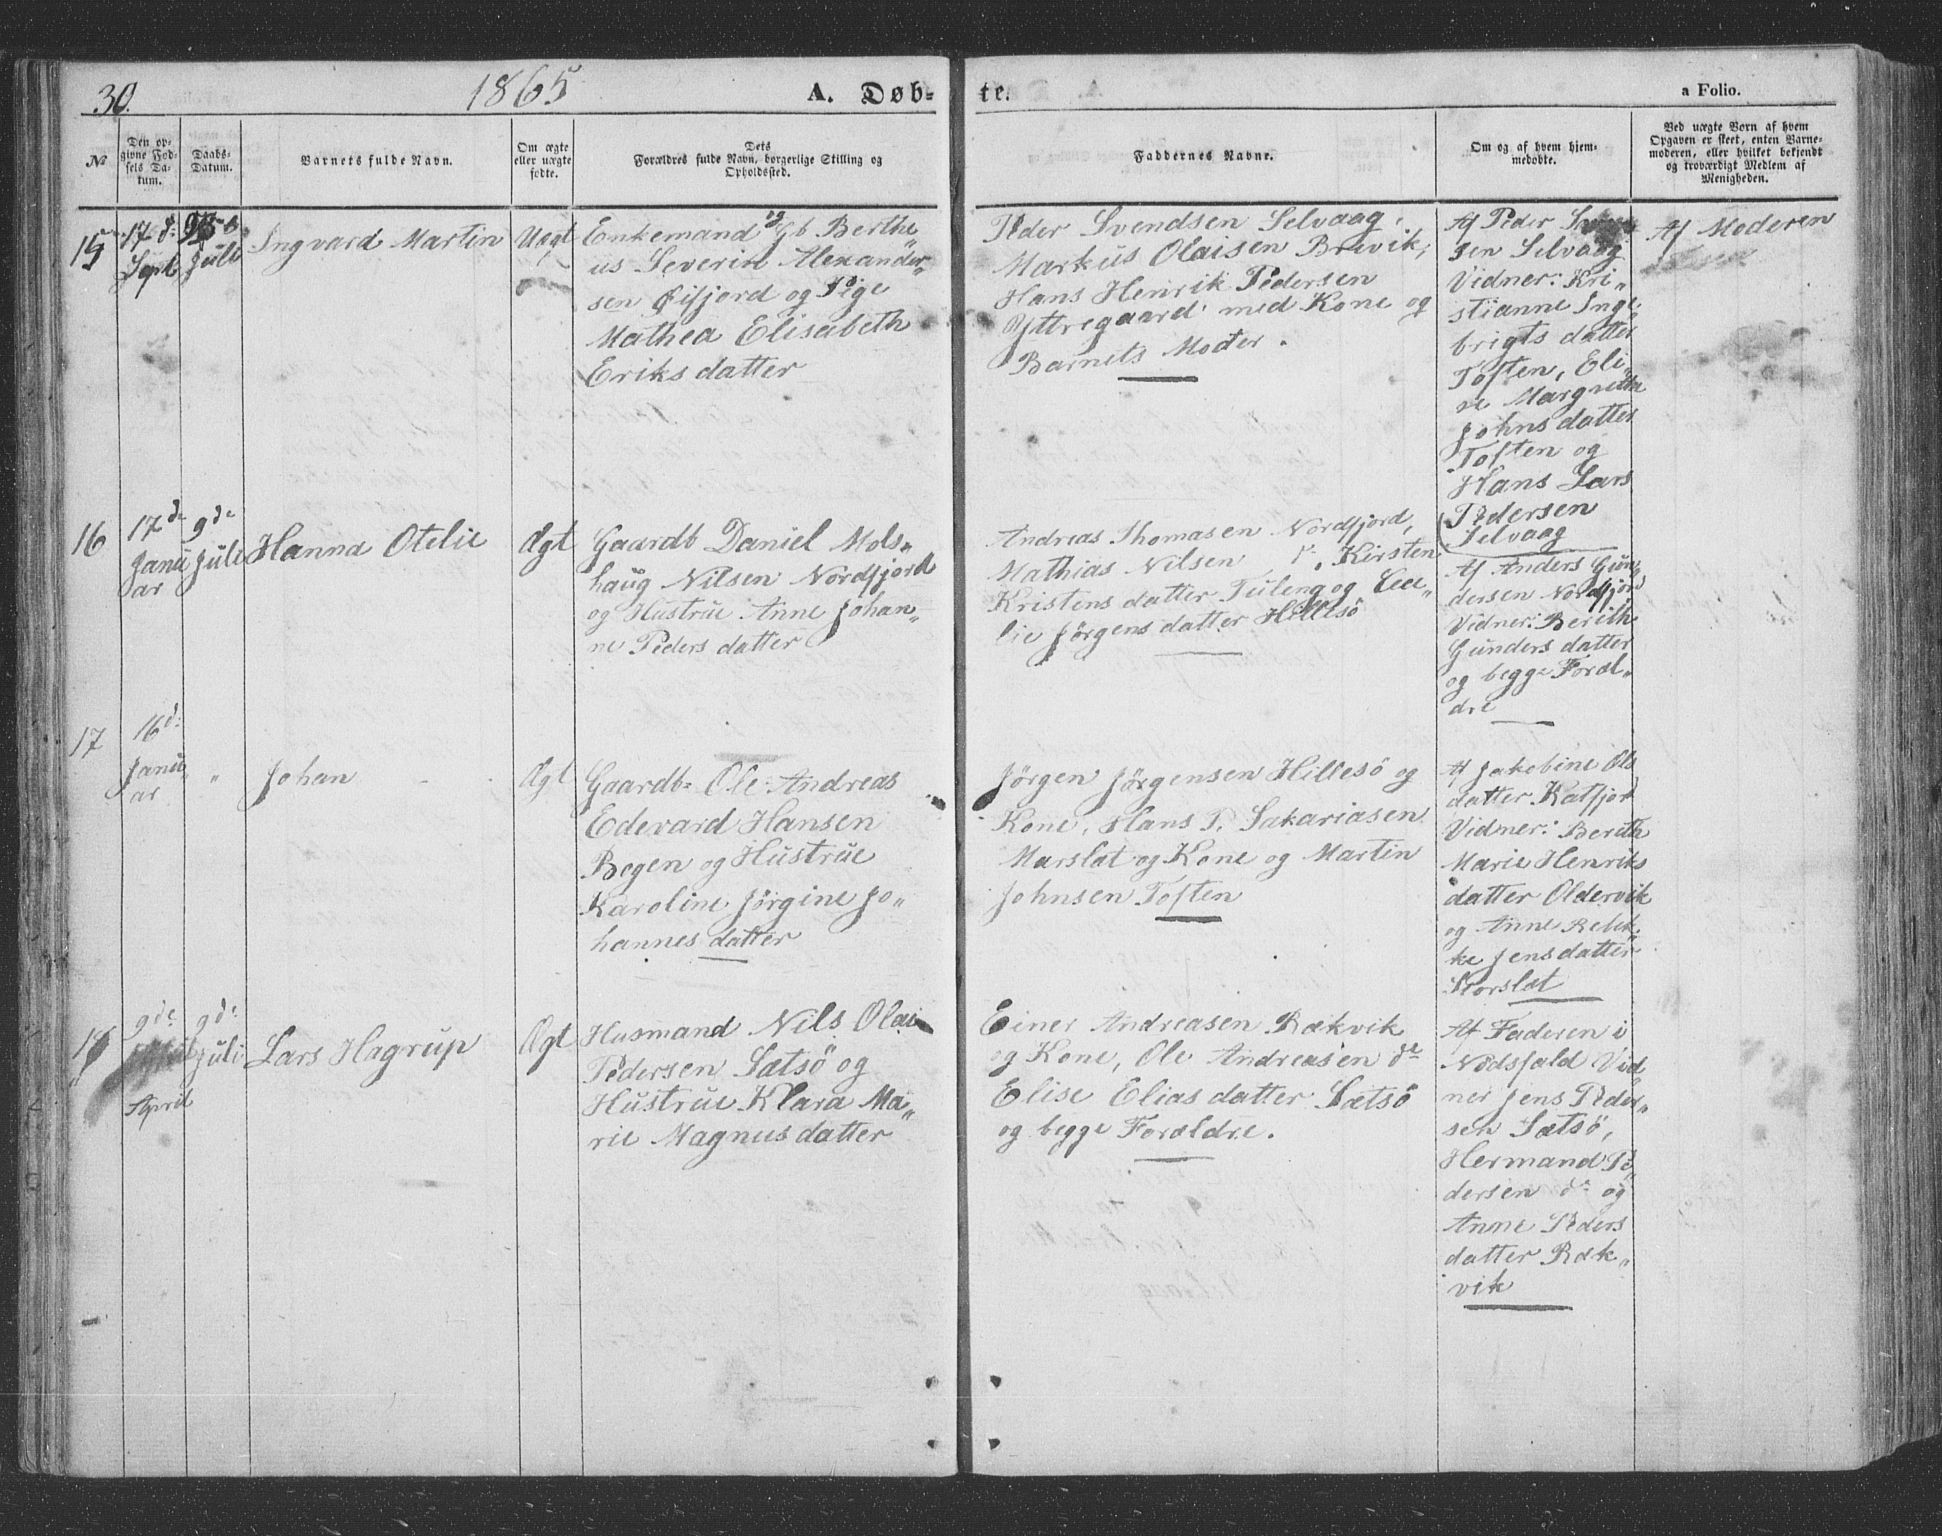 30.
1865
A. Døb-
te.
a Folio.
№
Den op-
givne Fød-
sels Da-
tum.
Daabs-
Datum.
Barnets fulde Navn.
Om ægte
eller uægte
fødte.
Dets
Forældres fulde Navn, borgerlige Stilling og
Opholdssted.
Faddernes Navne.
Om og af hvem hjem-
medøbte.
Ved uægte Børn af hvem
Opgaven er skeet, enten Barne-
moderen, eller hvilket bekjendt
og troværdigt Medlem af
Menigheden.
15
17 d:
Sept
Juli
Ingvard Martin
Uægt
Enkemand Berthe„
us Severin Alexander„
sen Øifjord og Pige
Mathea Elisabeth
Eriksdatter
Peder Svendsen Selvaag,
Markus Olaisen Brevik,
Hans Henrik Pedersen
Yttregaard med Kone og
Barnets Moder.
Af Peder
sen Selvaag
Vidner: Kri„
stianne Inge„
brigtsdatter
Toften, Eli„
se Margrethe
Johnsdatter
Toften og
Hans Lars
Pedersen
Selvaag
Af Moderen
16
17 d:
Janu
ar
9 de
Juli
Hanna Otelie
Ægt
Gaardb Daniel Mols„
haug Nilsen Nordfjord
og Hustrue Anne Johan„
ne Pedersdatter
Andreas Thomasen Nordfjord,
Mathias Nilsen Kirsten
Kristensdatter Tuleng og Cec„
lie Jørgensdatter Hillesö
Af Anders Gun„
dersen Nordfjord
Vidner: Berith
Gundersdatter
og begge Foræl„
dre
17
16 d:
Janu
ar
„
Johan
Ægt
Gaardb: Ole Andreas
Edevard Hansen
Bogen og Hustrue
Karoline Jørgine Jo„
hannesdatter
Jørgen Jørgensen Hillesö og
Kone, Hans P. Sakariasen
Marslæt og Kone og Martin
Johnsen Toften
Af Jakobine Ols
datter Katfjord
Vidner: Berith
Marie Henriks
datter Oldervik
og Anne Rebek„
ke Jensdatter
Storslæt
18
9 de
April
9 de
Juli
Lars Hagrup
Ægt
Husmand Nils Olai
Pedersen Sætsö og
Hustrue Klara Ma„
rie Magnusdatter
Einer Andreasen Rækvik
og Kone, Ole Andreasen de
Elise Eliasdatter Sætsö
og begge Forældre.
Af Faderen i
Nödsfald Vid
ner Jens Peder„
sen Sætsö,
Hermand Pe„
dersen d: og
Anne Peders
datter Ræk„
vik